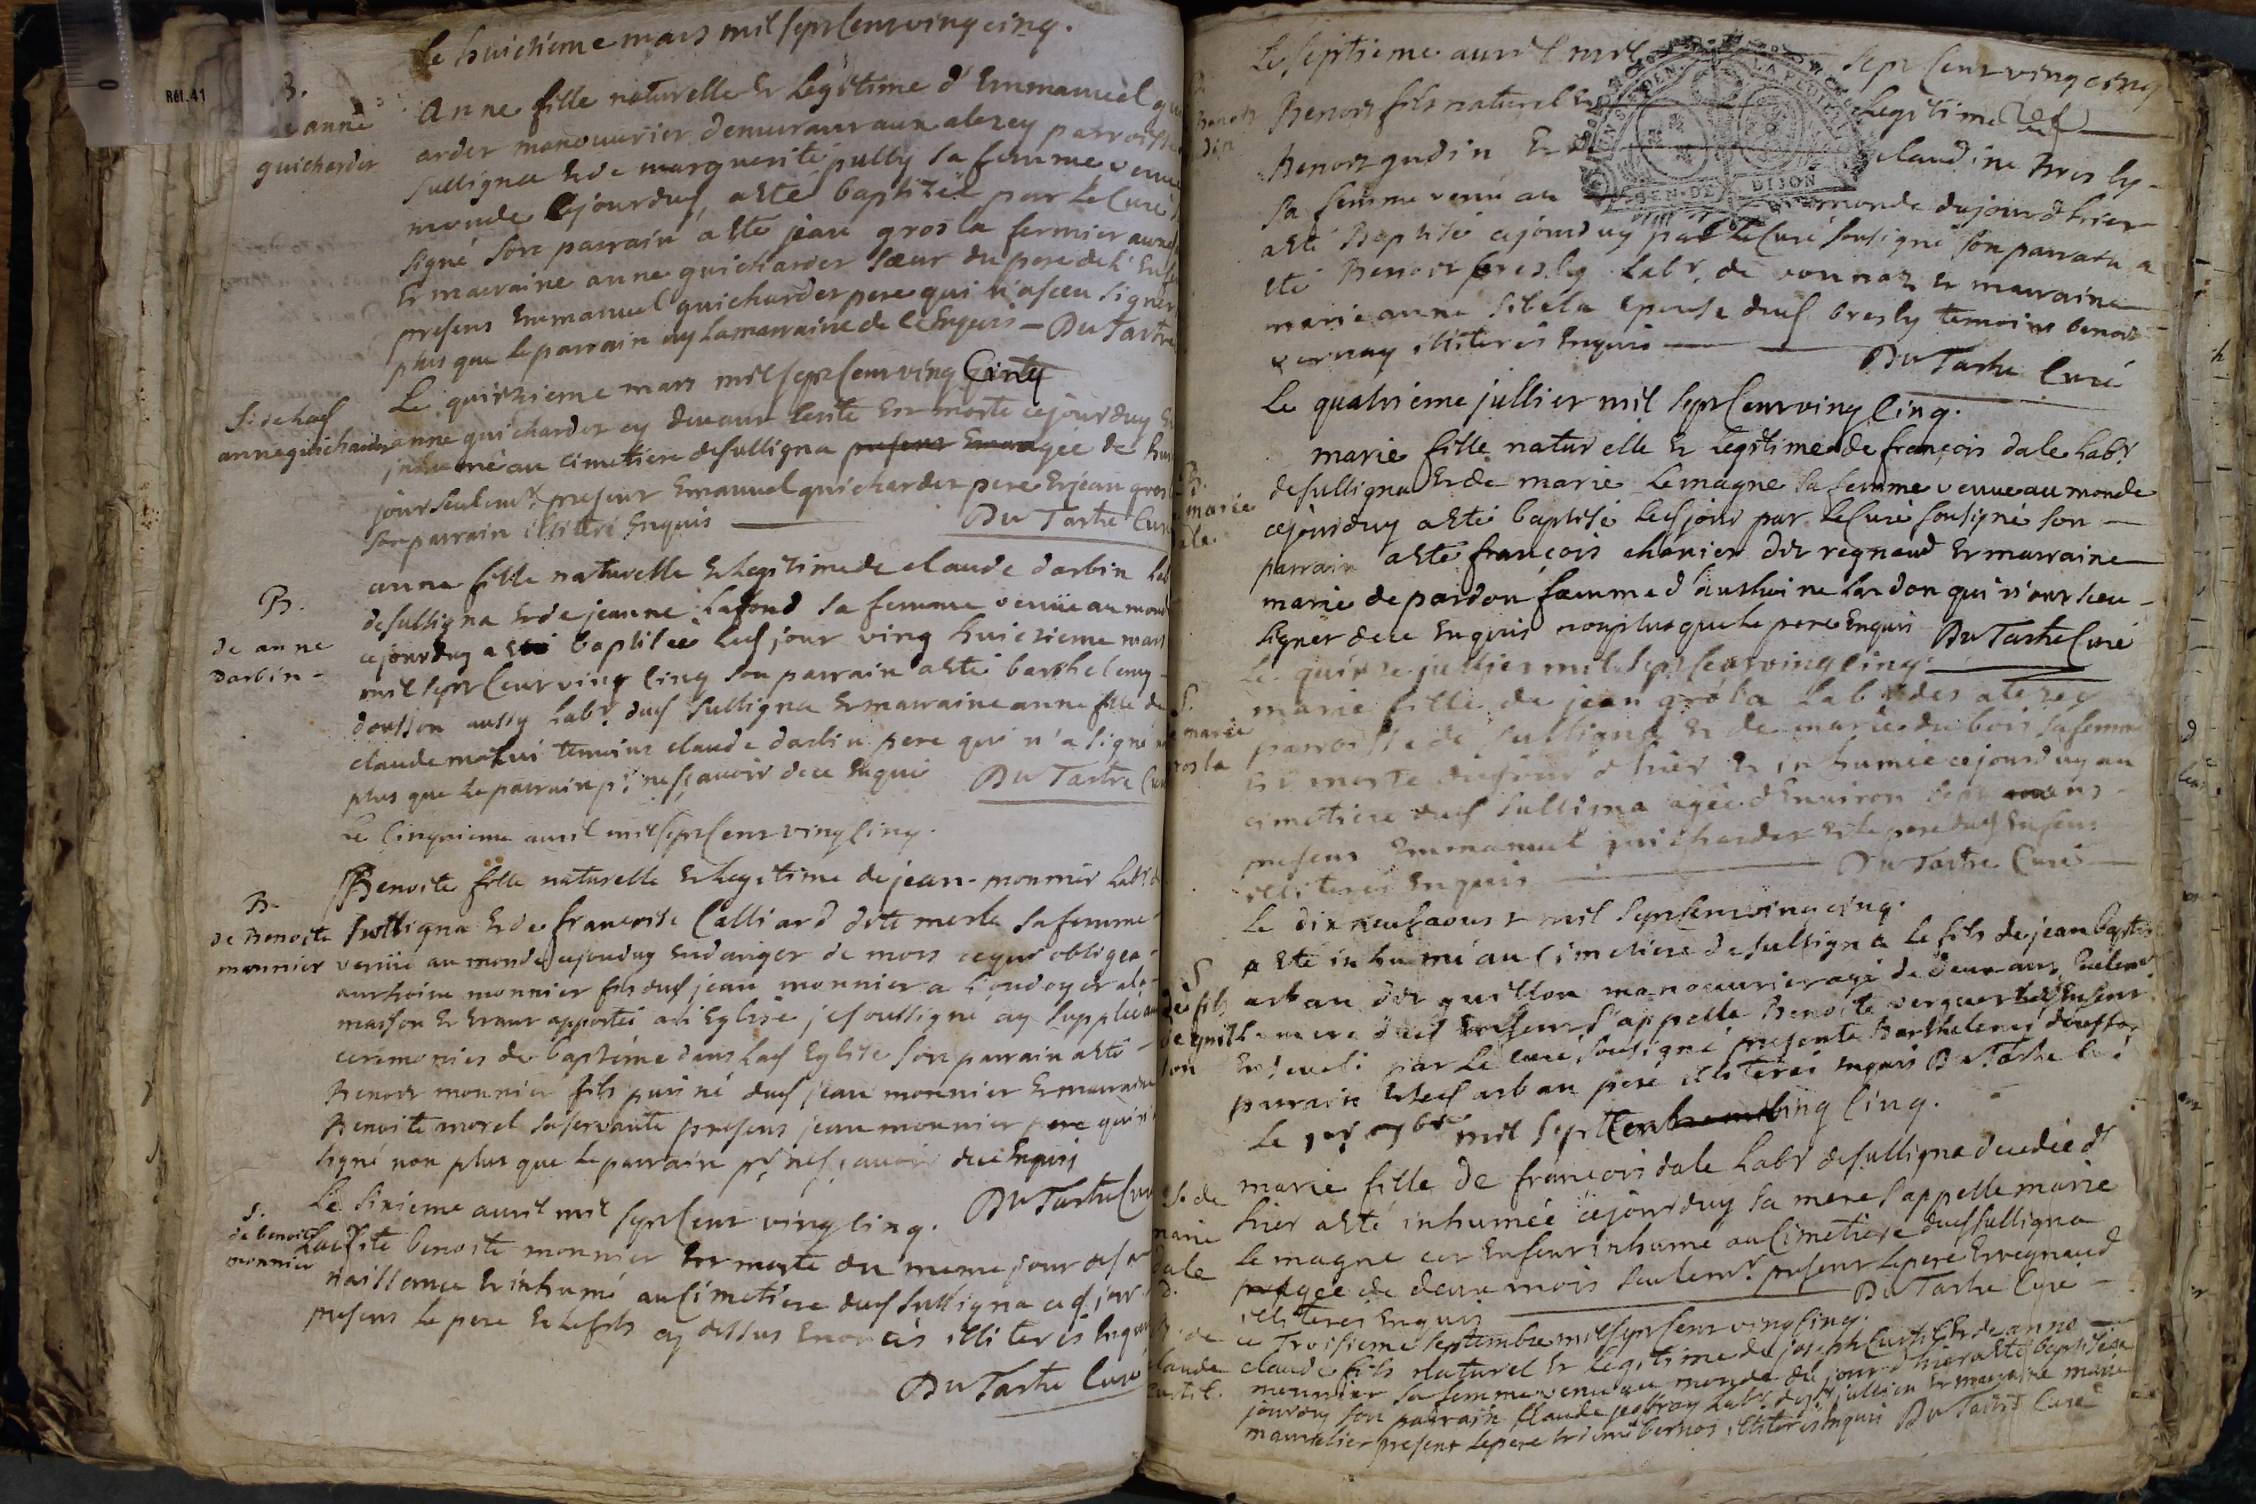 Ret. 41
Le huictieme mars mil sept cent ving cinq.
B.
de anne
guicharder
Anne fille naturelle et Legitime d'Emmanuel gui
arder manouurier demeurant aux alezey parroisse
sulligna et de marguerite pully sa femme venue
monde cejourduy, a este baptizée par le Curé
signé son parrain a este jean grosla fermier
et marraine anne guicharder sœur du pere de l'enf
presens Emmanuel guicharder pere qui n'a sceu signer
plus que le parrain ny la marraine de ce Enquis — Du Tartre
Le quinzieme mars mil sept cent ving Cinq
S. de
anne guicharder
anne guicharder cy deuant est morte cejourduy et
inhumé au cimetiere de sulligna agée de huit
jour seulemt. present Emanuel guicharder pere et jean gros
son parrain illiteré Enquis — Du Tartre Curé
B.
de anne
darbin -
anne fille naturelle et legitime de claude darbin lab
de sulligna et de jeanne Lafond sa femme venüe au mond
cejourduy a esté baptisée led jour ving huictieme mars
mil sept cent ving cinq son parrain a esté barthelemy
dousson aussy labr. dud sulligna et marraine anne fille de
claude temoins claude darbin pere qui n'a signé
plus que le parrain pr. ne sçavoir de ce Enquis Du Tartre Curé
Le Cinquieme auril mil sept cent ving cinq.
B.
de Benoite
monnier
Benoite fille naturelle et legitime de jean monnier labr. de
sulligna et de francoise Calliard dite merle sa femme
venüe au monde cejourduy En danger de mort ce qui obligea
anthoine monnier fils dud jean monnier a l'ondoyer a la
maison et etant apportée a l'Eglise je soussigné ay supplée aux
ceremonies de baptême dans lad Eglise son parrain a esté
Benoit monnier fils puiné dud jean monnier et marraine
Benoite morel sa servante presens jean monnier pere qui n'a
signé non plus que le parrain pr. ne sçavoir de ce Enquis
Du Tartre Curé
Le sixieme auril mil sept cent ving cinq.
S.
de benoite
monnier
Ladite benoite monnier est morte du meme jour de sa
naissance et inhumé au Cimetiere dud sulligna ced jour
presens le pere et le fils cy dessus enoncés illiterés Enquis
Du Tartre Curé
Le septieme auril mil sept cent ving cinq
DIJON
Benoit
Benoit fils naturel et Legitime de
Benoit gudin et de claudine bresly
sa femme venu au monde du jour d'hier
a esté Baptisé cejourduy par le Curé sousigné son parrain a
esté Benoit bresly labr. de vonnaz et marraine
marie anne sibela epouse dud bresly temoins benoit
vernay illiterés Enquis —
Du Tartre Curé
Le quatrieme jullier mil sept cent ving cinq.
B.
marie
dale.
marie fille naturelle et legitime de françois dale labr.
de sulligna et de marie Lemagne sa femme venue au monde
cejourduy a esté baptisé led jour par le Curé sousigné son
parrain a esté françois chanier dit regnaud et marraine
marie depardon fœmme d'anthoine lardon qui n'ont sceu
signer de ce Enquis non plus que le pere Enquis Du Tartre Curé
Le quinze jullier mil sept cent ving cinq.
S.
marie
grosla
marie fille de jean grosla labr. des alezey
parroisse de sulligna et de marie du bois sa femme
est morte du jour d'hier et inhumée cejourduy au
cimetiere dud sulligna agée d'Enuiron sept ans
presens Emmanuel guicharder et le pere dud Enfant
illiterés Enquis — Du Tartre Curé
Le dix neuf aoust mil sept cent ving cinq.
S
de fils
de guillon
a esté inhumé au Cimetiere de sulligna le fils de jean baptiste
arban dit guillon manouurier agé de deux ans seulemt
la mere dud Enfant s'appelle Benoite
par le curé sousigné presents Barthelemy dousson
parrain et led arban pere illiterés Enquis Du Tartre Curé
Le 1er 7bre mil sept cent ving cinq.
S. de
marie
dale
marie fille de françois dale labr de sulligna decedée d'
hier a esté inhumée cejourduy sa mere s'appelle marie
Lemagne cet Enfant inhumé au Cimetiere dud sulligna
agée de deux mois seulemt. present le pere et regnaud
illiterés Enquis — Du Tartre Curé
B. de
claude
curtil.
Le Troisieme septembre mil sept cent ving cinq.
claude fils naturel et legitime de joseph Curtil et de anne
meunier sa femme venu au monde du jour d'hier a esté baptisé ce
jourduy son parrain Claude labr. de st. jullien et marraine marie
present le pere illiterés Enquis Du Tartre Curé